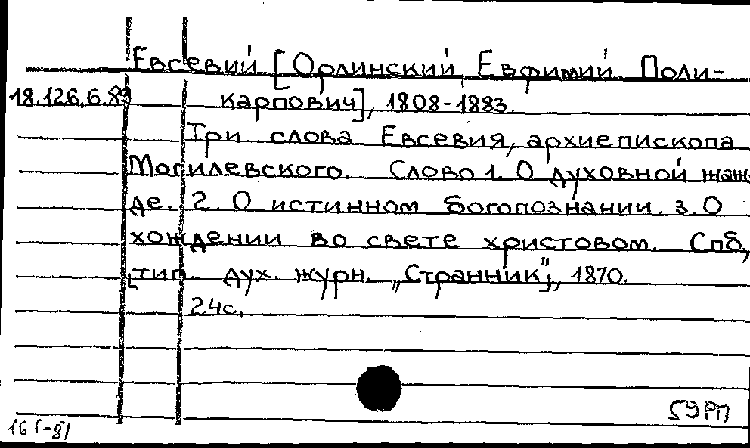 Евсевий [Орлинский, Евфимий Поли-
18.126.6.89 карпович], 1808-1883.
Три слова Евсевия, архиепископа
Могилевского. Слово 1. О духовной жаж-
де. 2. О истинном богопознании. 3. О
хождении во свете христовом. Спб,
[тип. дух. журн. „Странник"], 1870.
24с.
59РП